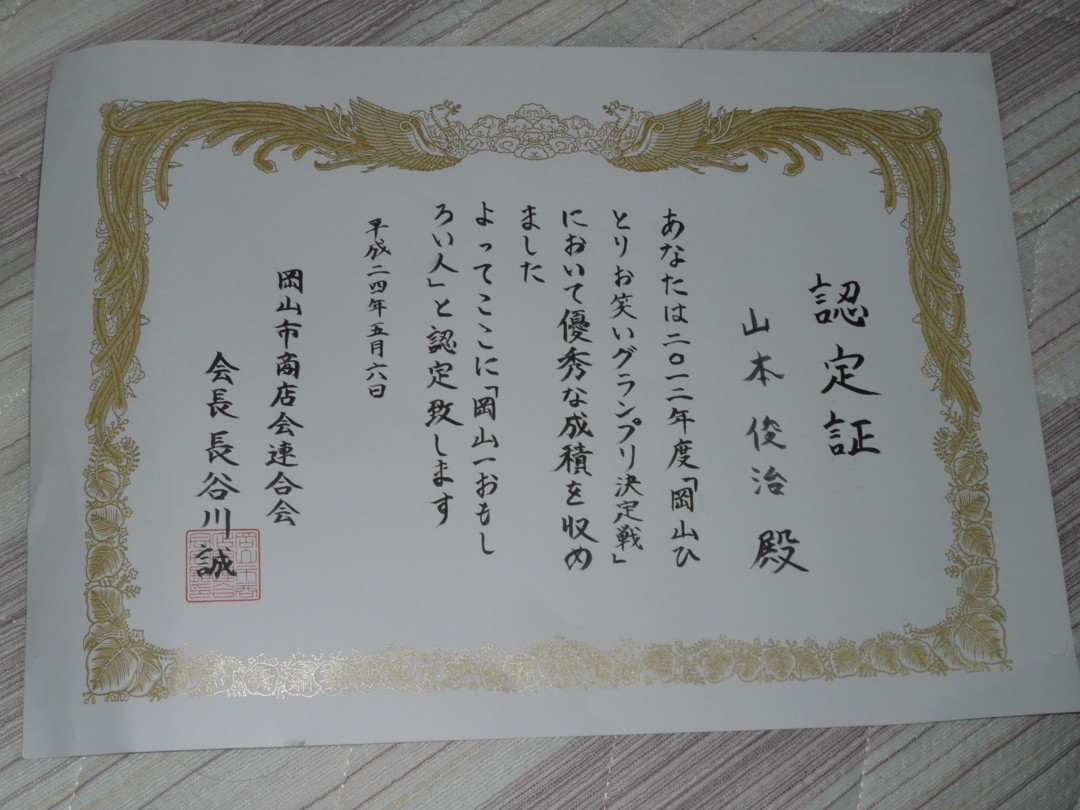 認定証
山本俊治 殿
あなたは二〇一二年度「岡山ひ
とりお笑いグランプリ決定戦」
において優秀な成積を収め
ました
よってここに「岡山一おもし
ろい人」と認定致します
平成二四年五月六日
岡山市商店会連合会
会長 長谷川 誠